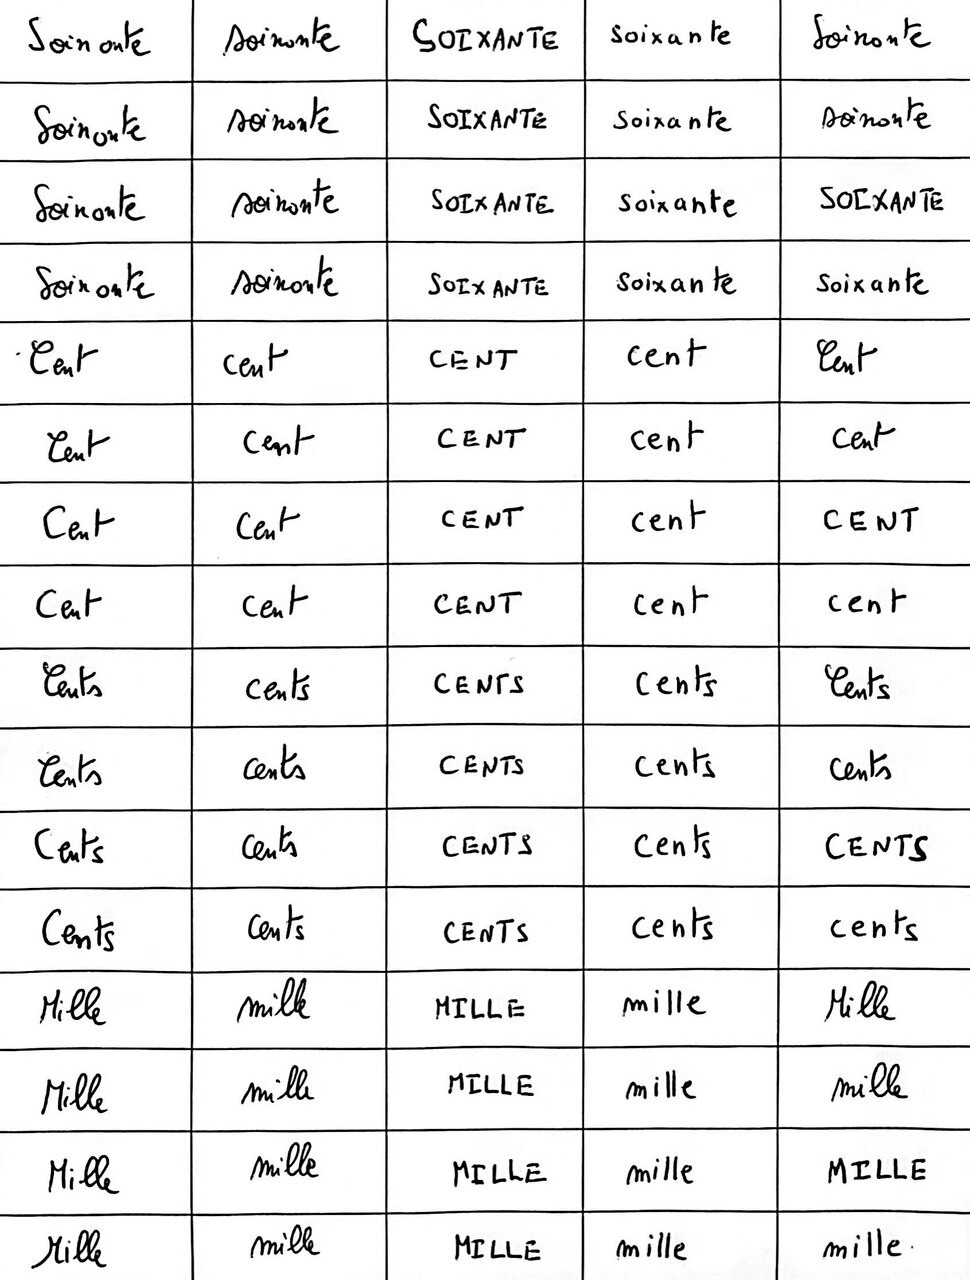 Soixante soixante SOIXANTE soixante Soixante
Soixante soixante SOIXANTE soixante soixante
Soixante soixante SOIXANTE soixante SOIXANTE
Soixante soixante SOIXANTE soixante soixante
Cent cent CENT cent Cent
Cent cent CENT cent cent
Cent cent CENT cent CENT
Cent cent CENT cent cent
Cents cents CENTS cents Cents
Cents cents CENTS cents cents
Cents cents CENTS cents CENTS
Cents cents CENTS cents cents
Mille mille MILLE mille Mille
Mille mille MILLE mille mille
Mille mille MILLE mille MILLE
Mille mille MILLE mille mille